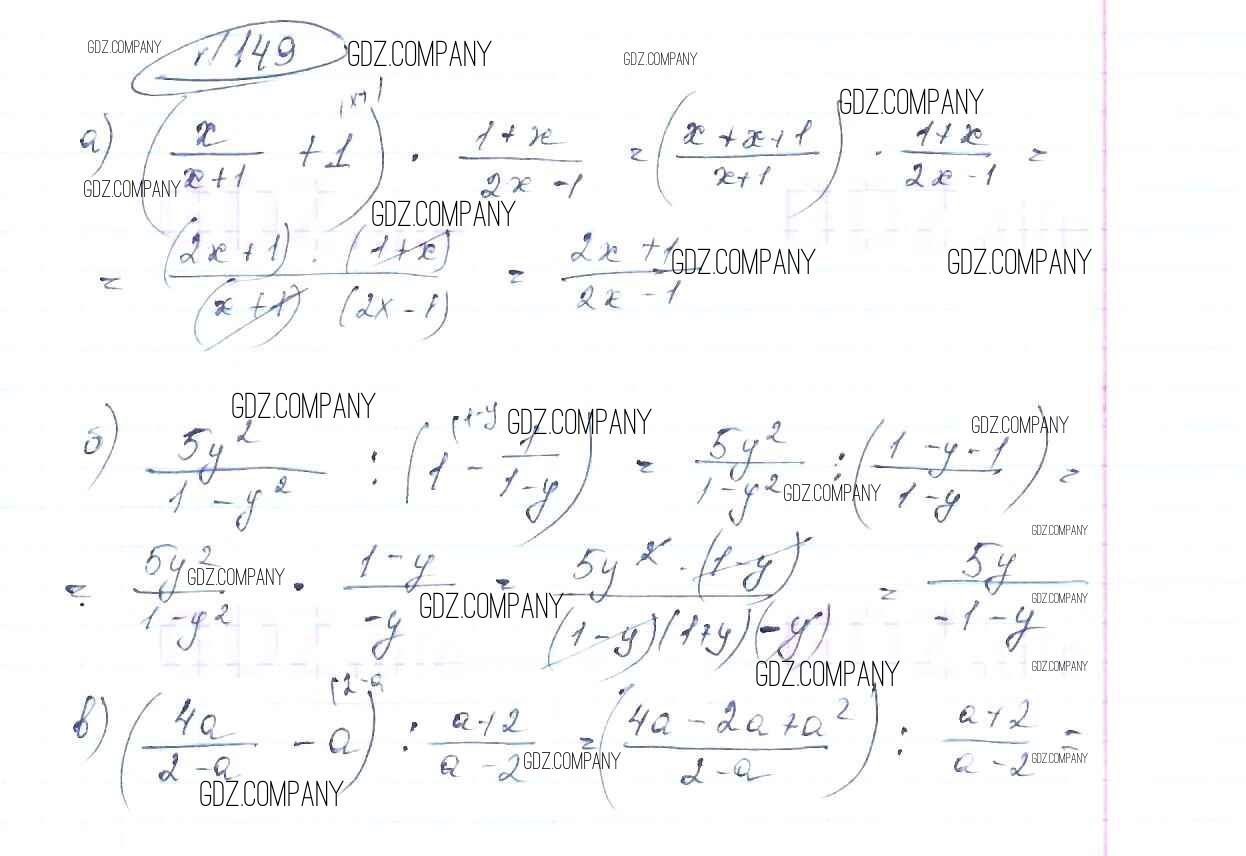 GDZ.COMPANY № 149 GDZ.COMPANY GDZ.COMPANY
а) (x/(x+1) + 1) · (1+x)/(2x-1) = ((x+x+1)/(x+1)) · (1+x)/(2x-1) = GDZ.COMPANY
GDZ.COMPANY GDZ.COMPANY
= ((2x+1) · (1+x))/((x+1) (2x-1)) = (2x+1)/(2x-1) GDZ.COMPANY GDZ.COMPANY
GDZ.COMPANY GDZ.COMPANY GDZ.COMPANY
б) 5y²/(1-y²) : (1 - 1/(1-y)) = 5y²/(1-y²) : ((1-y-1)/(1-y)) =
GDZ.COMPANY GDZ.COMPANY
= 5y²/(1-y²) · (1-y)/(-y) = (5y² · (1-y))/((1-y)(1+y)(-y)) = 5y/(-1-y)
GDZ.COMPANY GDZ.COMPANY GDZ.COMPANY
GDZ.COMPANY GDZ.COMPANY
в) (4a/(2-a) - a) : (a+2)/(a-2) = ((4a-2a+a²)/(2-a)) : (a+2)/(a-2) =
GDZ.COMPANY GDZ.COMPANY GDZ.COMPANY